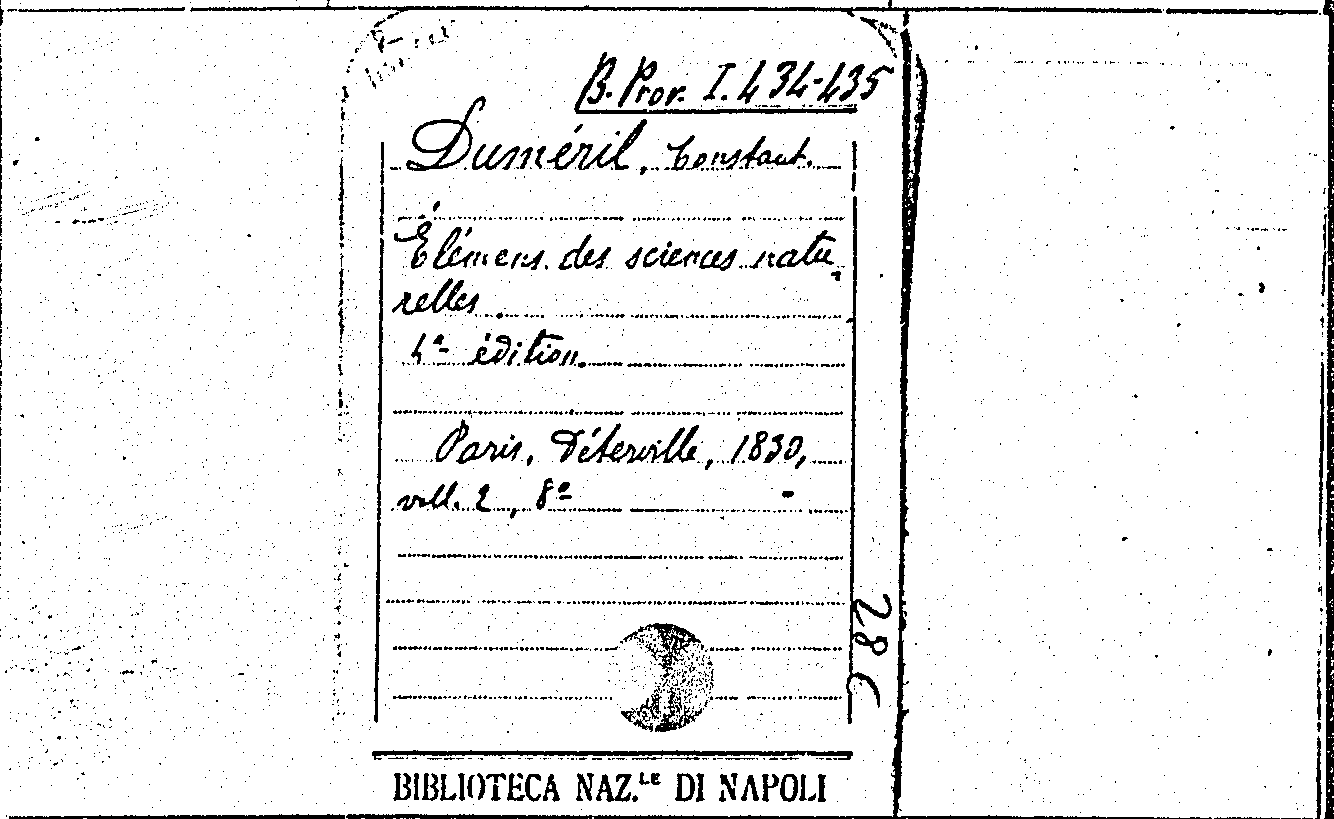 B. Prov. I. 434-435
Duméril, Constant.
Élémens des sciences natu
relles.
4ª édition.
Paris, Déterville, 1830,
voll. 2, 8º -
28C
BIBLIOTECA NAZ.LE DI NAPOLI